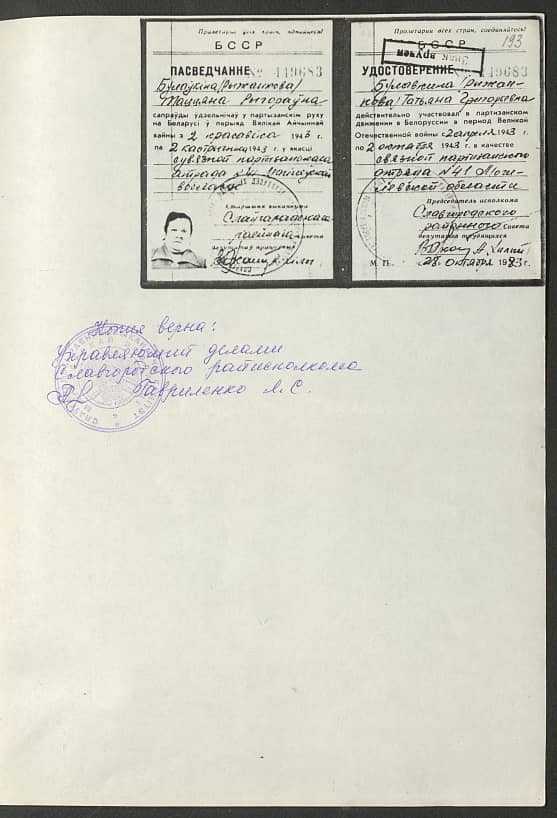 Пралетарыі ўсіх краін, яднайцеся!
БССР
ПАСВЕДЧАННЕ № 149683
Булаўкіна /Рыжанкова/
Таццяна Рыгораўна
сапраўды удзельнічаў у партызанскім руху
на Беларусі ў перыяд Вялікай Айчыннай
вайны з 2 красавіка 1943 г.
па 2 кастрычніка 1943 г. у якасці
сувязной партызанскага
атрада №41 Магілёўскай
вобласці
Старшыня выканкома
Слаўгарадскага
раённага Савета
дэпутатаў працоўных
Пролетарии всех стран, соединяйтесь!
193
БССР
Знак вручен
УДОСТОВЕРЕНИЕ № 149683
Булавкина /Рыжан-
кова/ Татьяна Григорьевна
действительно участвовал в партизанском
движении в Белоруссии в период Великой
Отечественной войны с 2 апреля 1943 г.
по 2 октября 1943 г. в качестве
связной партизанского
отряда №41 Моги-
левской области
Председатель исполкома
Славгородского
районного Совета
депутатов трудящихся
М. П. 28 октября 1983 г.
Копия верна:
Управляющий делами
Славгородского райисполкома
Гавриленко Л.С.